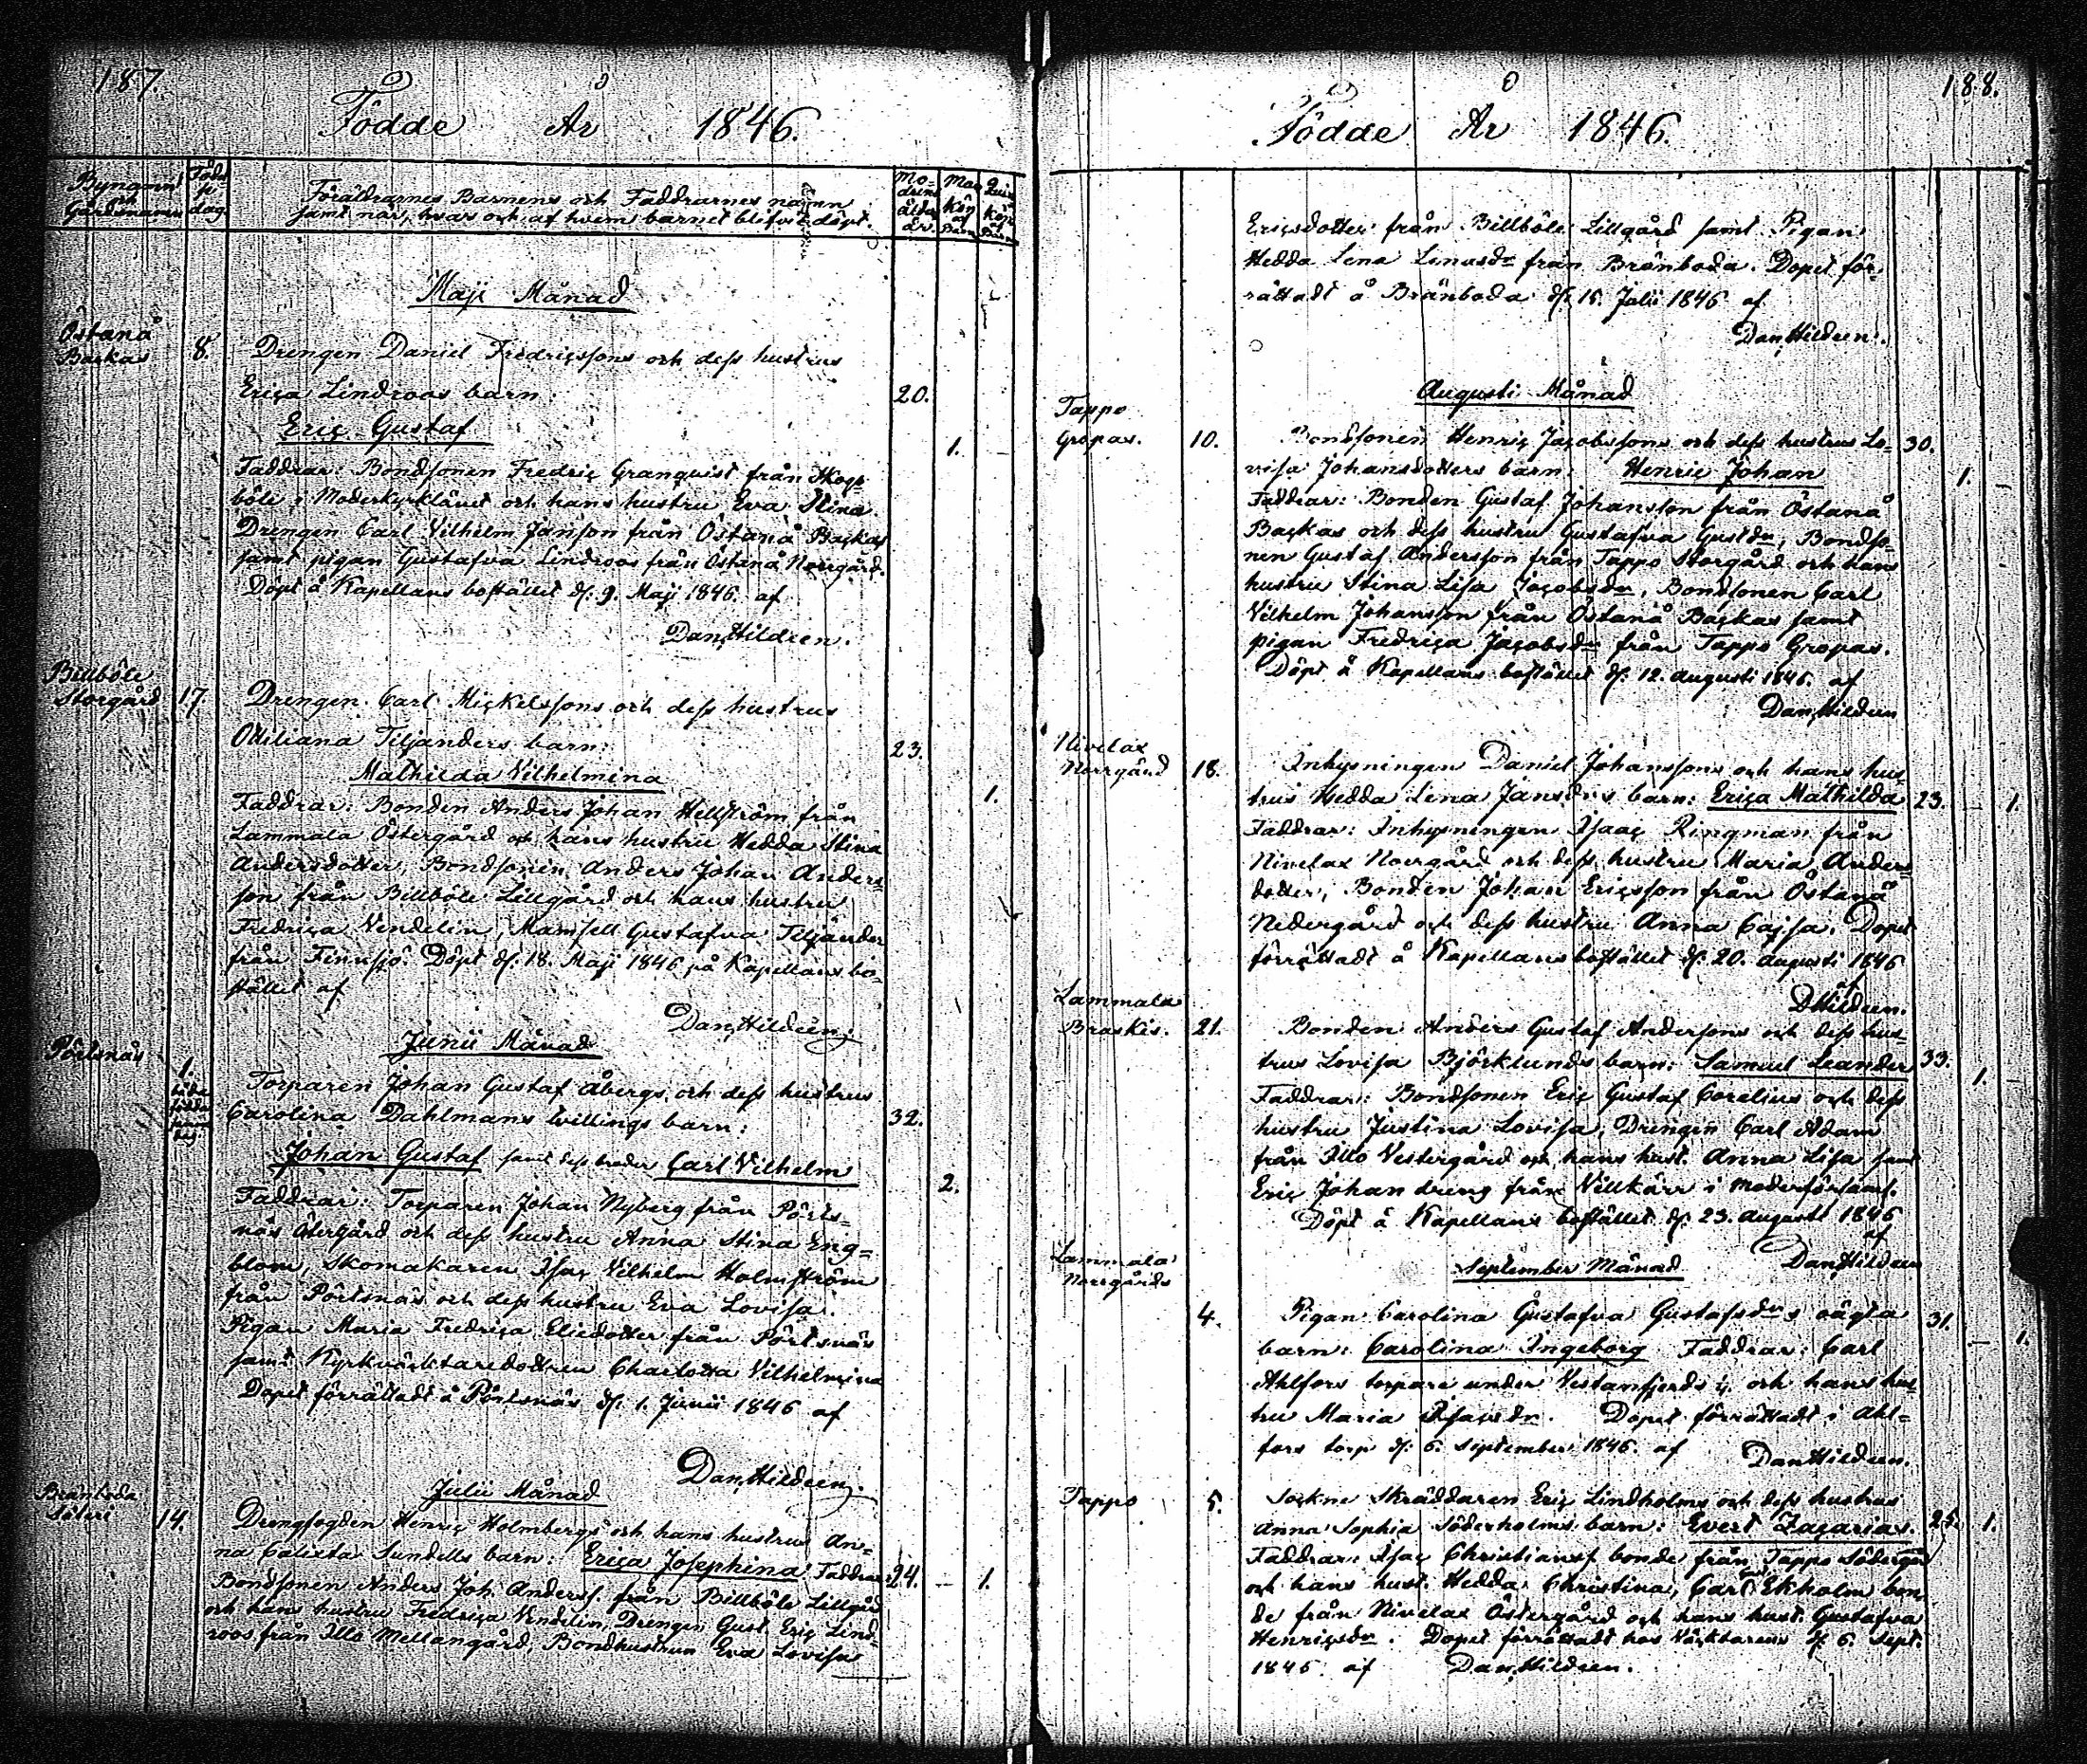 187.
Födde År 1846.
Bynamn och Gårdsnamn
Föds- dag.
Föräldrarnes Barnens och Faddrarnes namn
samt när, hvar och af hvem barnet blifvit döpt.
Mo- drens ålder år.
Man Kön af Barn
Quin Kön Barn
Maji Månad
Östanå
Backas 8. Drengen Daniel Fredricssons och dess hustrus
Erica Lindroos barn: 20.
Eric Gustaf 1.
Faddrar: Bondsonen Fredric Granqvist från Skogs-
böle i Moderkyrkläuet och hans hustru Eva Stina.
Drengen Carl Vilhelm Janson från Östanå Backas
samt pigan Gustafva Lindroos från Östanå Norrgård.
Döpt å Kapellans bostället d. 9. Maji 1846. af
Dan. Hildeen.
Billböle
Storgård 17. Drengen Carl Mickelssons och dess hustrus
Ottiliana Tiljanders barn: 23.
Mathilda Vilhelmina 1.
Faddrar: Bonden Anders Johan Hellström från
Lammala Östergård och hans hustru Hedda Stina
Andersdotter, Bondsonen Anders Johan Anders-
son från Billböle Lillgård och hans hustru
Fredrica Vendelin, Mamsell Gustafva Tiljander
från Finnsjö. Döpt d. 18. Maji 1846 på Kapellans bo-
stället af
Dan. Hildeen.
Junii Månad
Pörtsnäs 1.
Torparen Johan Gustaf Åbergs och dess hustrus
Carolina Dahlmans tvillings barn: 32.
Johan Gustaf samt dess broder Carl Vilhelm 2.
Faddrar: Torparen Johan Nyberg från Pörts-
näs Östergård och dess hustru Anna Stina Eng-
blom, Skomakaren Isac Vilhelm Holmström
från Pörtsnäs och dess hustru Eva Lovisa.
Pigan Maria Fredrica Eliedotter från Pörtsnäs
samt Kyrkväcktaredottren Charlotta Vilhelmina
Dopet förrättadt å Pörtsnäs d. 1. Junii 1846 af
Dan. Hildeen.
Julii Månad
Bränboda
Säteri 14. Drengfogden Henric Holmbergs och hans hustrus An-
na Calixta Sundells barn: Erica Josephina Faddrar: 24. – 1.
Bondsonen Anders Joh. Anderss. från Billböle Lillgård
och hans hustru Fredrica Vendelin, Drengen Gust. Eric Lind-
roos från Illo Mellangård, Bondhustrun Eva Lovisa
188.
Födde År 1846.
Ericsdotter från Billböle Lillgård samt Pigan
Hedda Lena Linusdr från Bränboda. Dopet för-
rättadt å Bränboda d. 15. Julii 1846 af
Dan. Hildeen.
Augusti Månad
Tappo
Gropas. 10. Bondsonen Henric Jacobssons och dess hustrus Lo- 30.
visa Johansdotters barn: Henric Johan 1.
Faddrar: Bonden Gustaf Johansson från Östanå
Backas och dess hustru Gustafva Gustdr, Bondso-
nen Gustaf Andersson från Tappo Storgård och hans
hustru Stina Lisa Jacobsdr, Bondsonen Carl
Vilhelm Johansson från Östanå Backas samt
pigan Fredrica Jacobsdr från Tappo Gropas.
Döpt å Kapellans bostället d. 12. augusti 1846. af
Dan. Hildeen
Nivelax
Norrgård 18. Inhysningen Daniel Johanssons och hans hus-
trus Hedda Lena Jansdrs barn: Erica Mathilda 23. – 1.
Faddrar: Inhysningen Isaac Ringman från
Nivelax Norrgård och dess hustru Maria Anders-
dotter, Bonden Johan Ericsson från Östanå
Nedergård och dess hustru Anna Cajsa. Dopet
förrättadt å Kapellans bostället d. 20. augusti 1846
af
D Hildeen.
Lammala
Braskis. 21. Bonden Anders Gustaf Andersons och dess hus-
trus Lovisa Björklunds barn: Samuel Leander 33. 1. –
Faddrar: Bondsonen Eric Gustaf Corelius och dess
hustru Justina Lovisa, Drengen Carl Adam
från Illo Vestergård och hans hust. Anna Lisa samt
Eric Johan dreng från Villkärr i Moderförsaml.
Döpt å Kapellans bostället d. 23. augusti 1846
af
Dan. Hildeen
September Månad
Lammala
Norrgårds
4. Pigan Carolina Gustafva Gustafsdrs oägta 31.
barn: Carolina Ingeborg Faddrar: Carl – 1.
Ahlfors torpare under Vestanfjerds och hans hus-
tru Maria Isacsdr. Dopet förrättadt i Ahl-
fors torp d. 6. september 1846. af
Dan. Hildeen.
Tappo 5. Sockne Skräddaren Eric Lindholms och dess hustrus
Anna Sophia Söderholms barn: Evert Zacarias. 25. 1.
Faddrar: Isac Christianss. bonde från Tappo Södergård
och hans hust. Hedda Christina, Carl Ekholm bon-
de från Nivelax Östergård och hans hust. Gustafva
Henricsdr. Dopet förrättadt hos Väcktarens d. 6. Sept.
1846. af Dan. Hildeen.